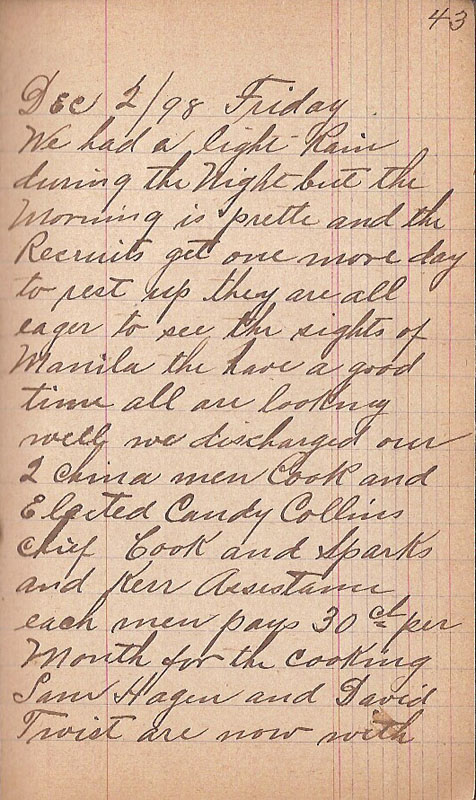 43
Dec 2/98 Friday
We had a light Rain
during the Night but the
Morning is prette and the
Recruits get one more day
to rest up they are all
eager to see the sights of
Manila the have a good
time all are looking
well, we discharged our
2 china men Cook and
Elected Candy Collins
chief Cook and Sparks
and Kerr Assistance
each men pays 30 ct per
Month for the cooking
Sam Hagen and David
Twist are now with